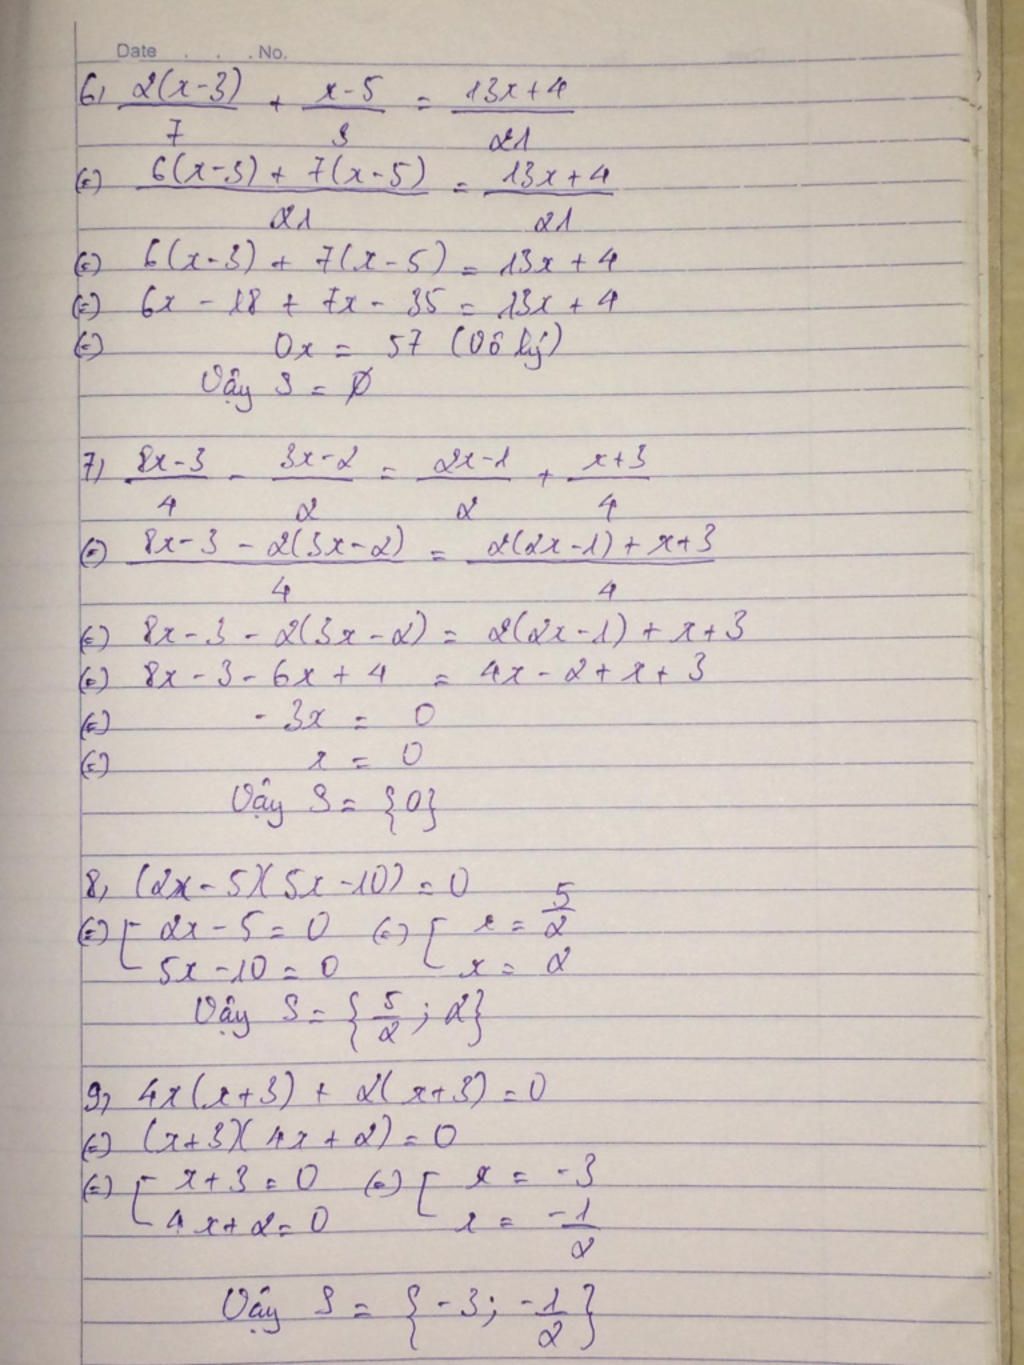 Date . . . No.
6, 2(x-3)/7 + x-5/3 = 13x+4/21
(=) 6(x-3) + 7(x-5)/21 = 13x+4/21
(=) 6(x-3) + 7(x-5) = 13x + 4
(=) 6x - 18 + 7x - 35 = 13x + 4
(=) 0x = 57 (Vô lý)
Vậy S = ∅
7, 8x-3/4 - 3x-2/2 = 2x-1/2 + x+3/4
(=) 8x-3 - 2(3x-2)/4 = 2(2x-1) + x+3/4
(=) 8x-3 - 2(3x-2) = 2(2x-1) + x+3
(=) 8x - 3 - 6x + 4 = 4x - 2 + x + 3
(=) -3x = 0
(=) x = 0
Vậy S = {0}
8, (2x-5)(5x-10) = 0
(=) [ 2x-5 = 0 (=) [ x = 5/2
5x-10 = 0 x = 2
Vậy S = {5/2; 2}
9, 4x(x+3) + 2(x+3) = 0
(=) (x+3)(4x+2) = 0
(=) [ x+3 = 0 (=) [ x = -3
4x+2 = 0 x = -1/2
Vậy S = {-3; -1/2}